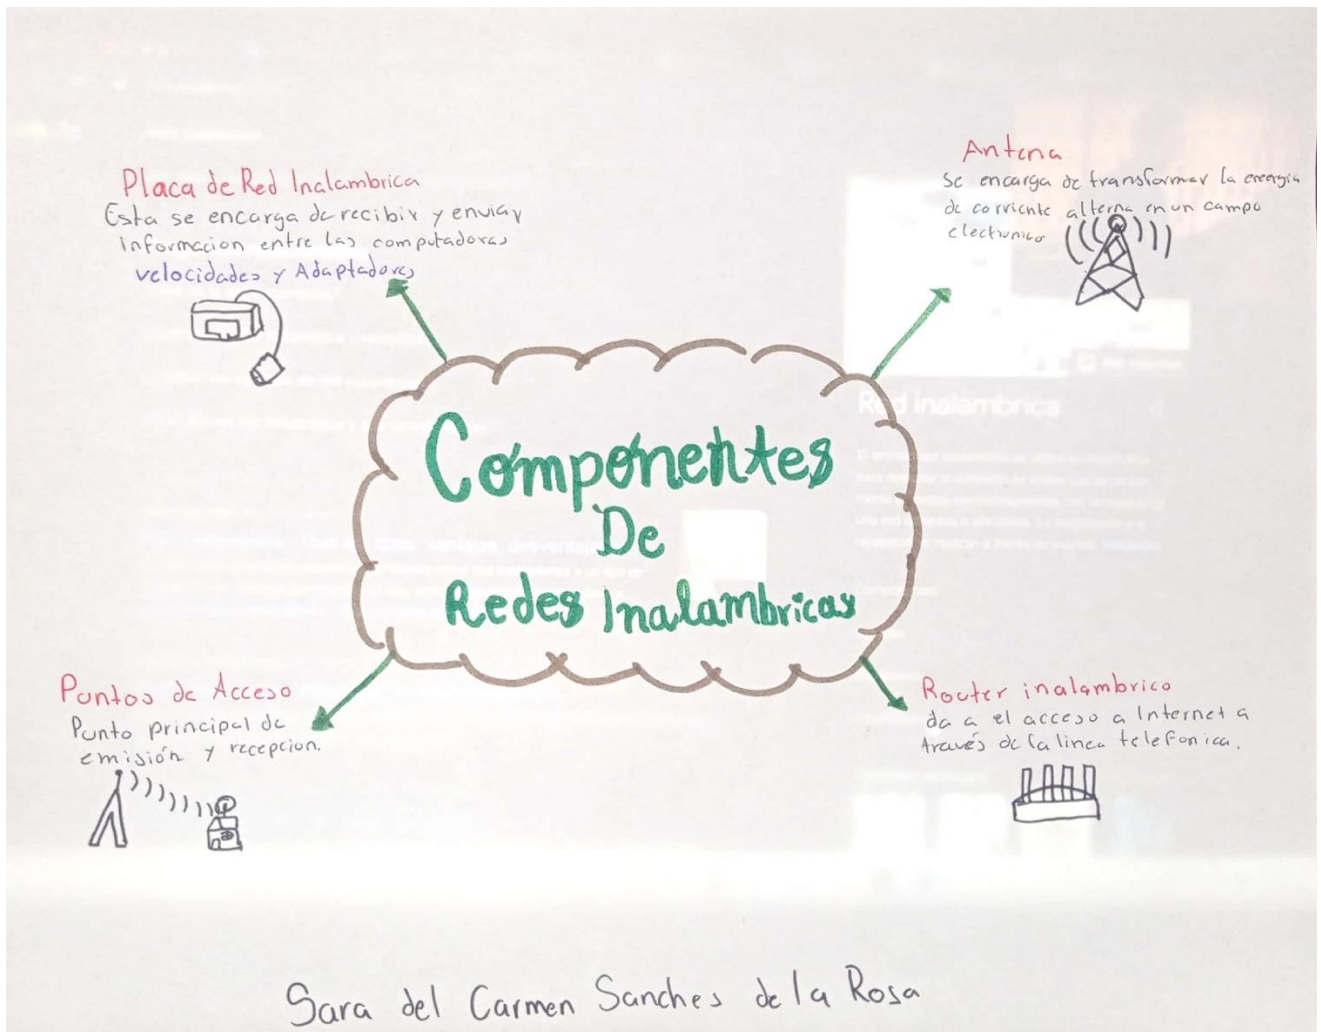 Placa de Red Inalambrica
Esta se encarga de recibir y enviar
informacion entre las computadoras
velocidades y Adaptadores
Antena
Se encarga de transformar la energia
de corriente alterna en un campo
electronico
Componentes
De
Redes Inalambricas
Red inalámbrica
Puntos de Acceso
Punto principal de
emisión y recepcion.
Router inalambrico
da a el acceso a Internet a
través de la linea telefonica.
Sara del Carmen Sanches de la Rosa